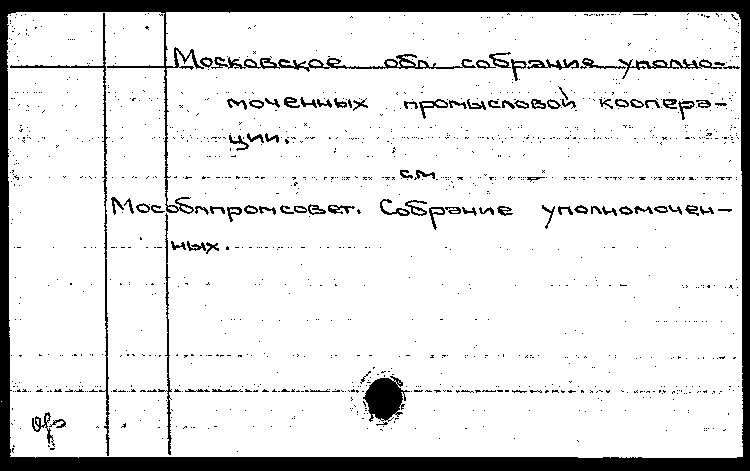 Московское обл. собрание уполно-
моченных промысловой коопера-
ции.
см
Мособлпромсовет. Собрание уполномочен-
ных.